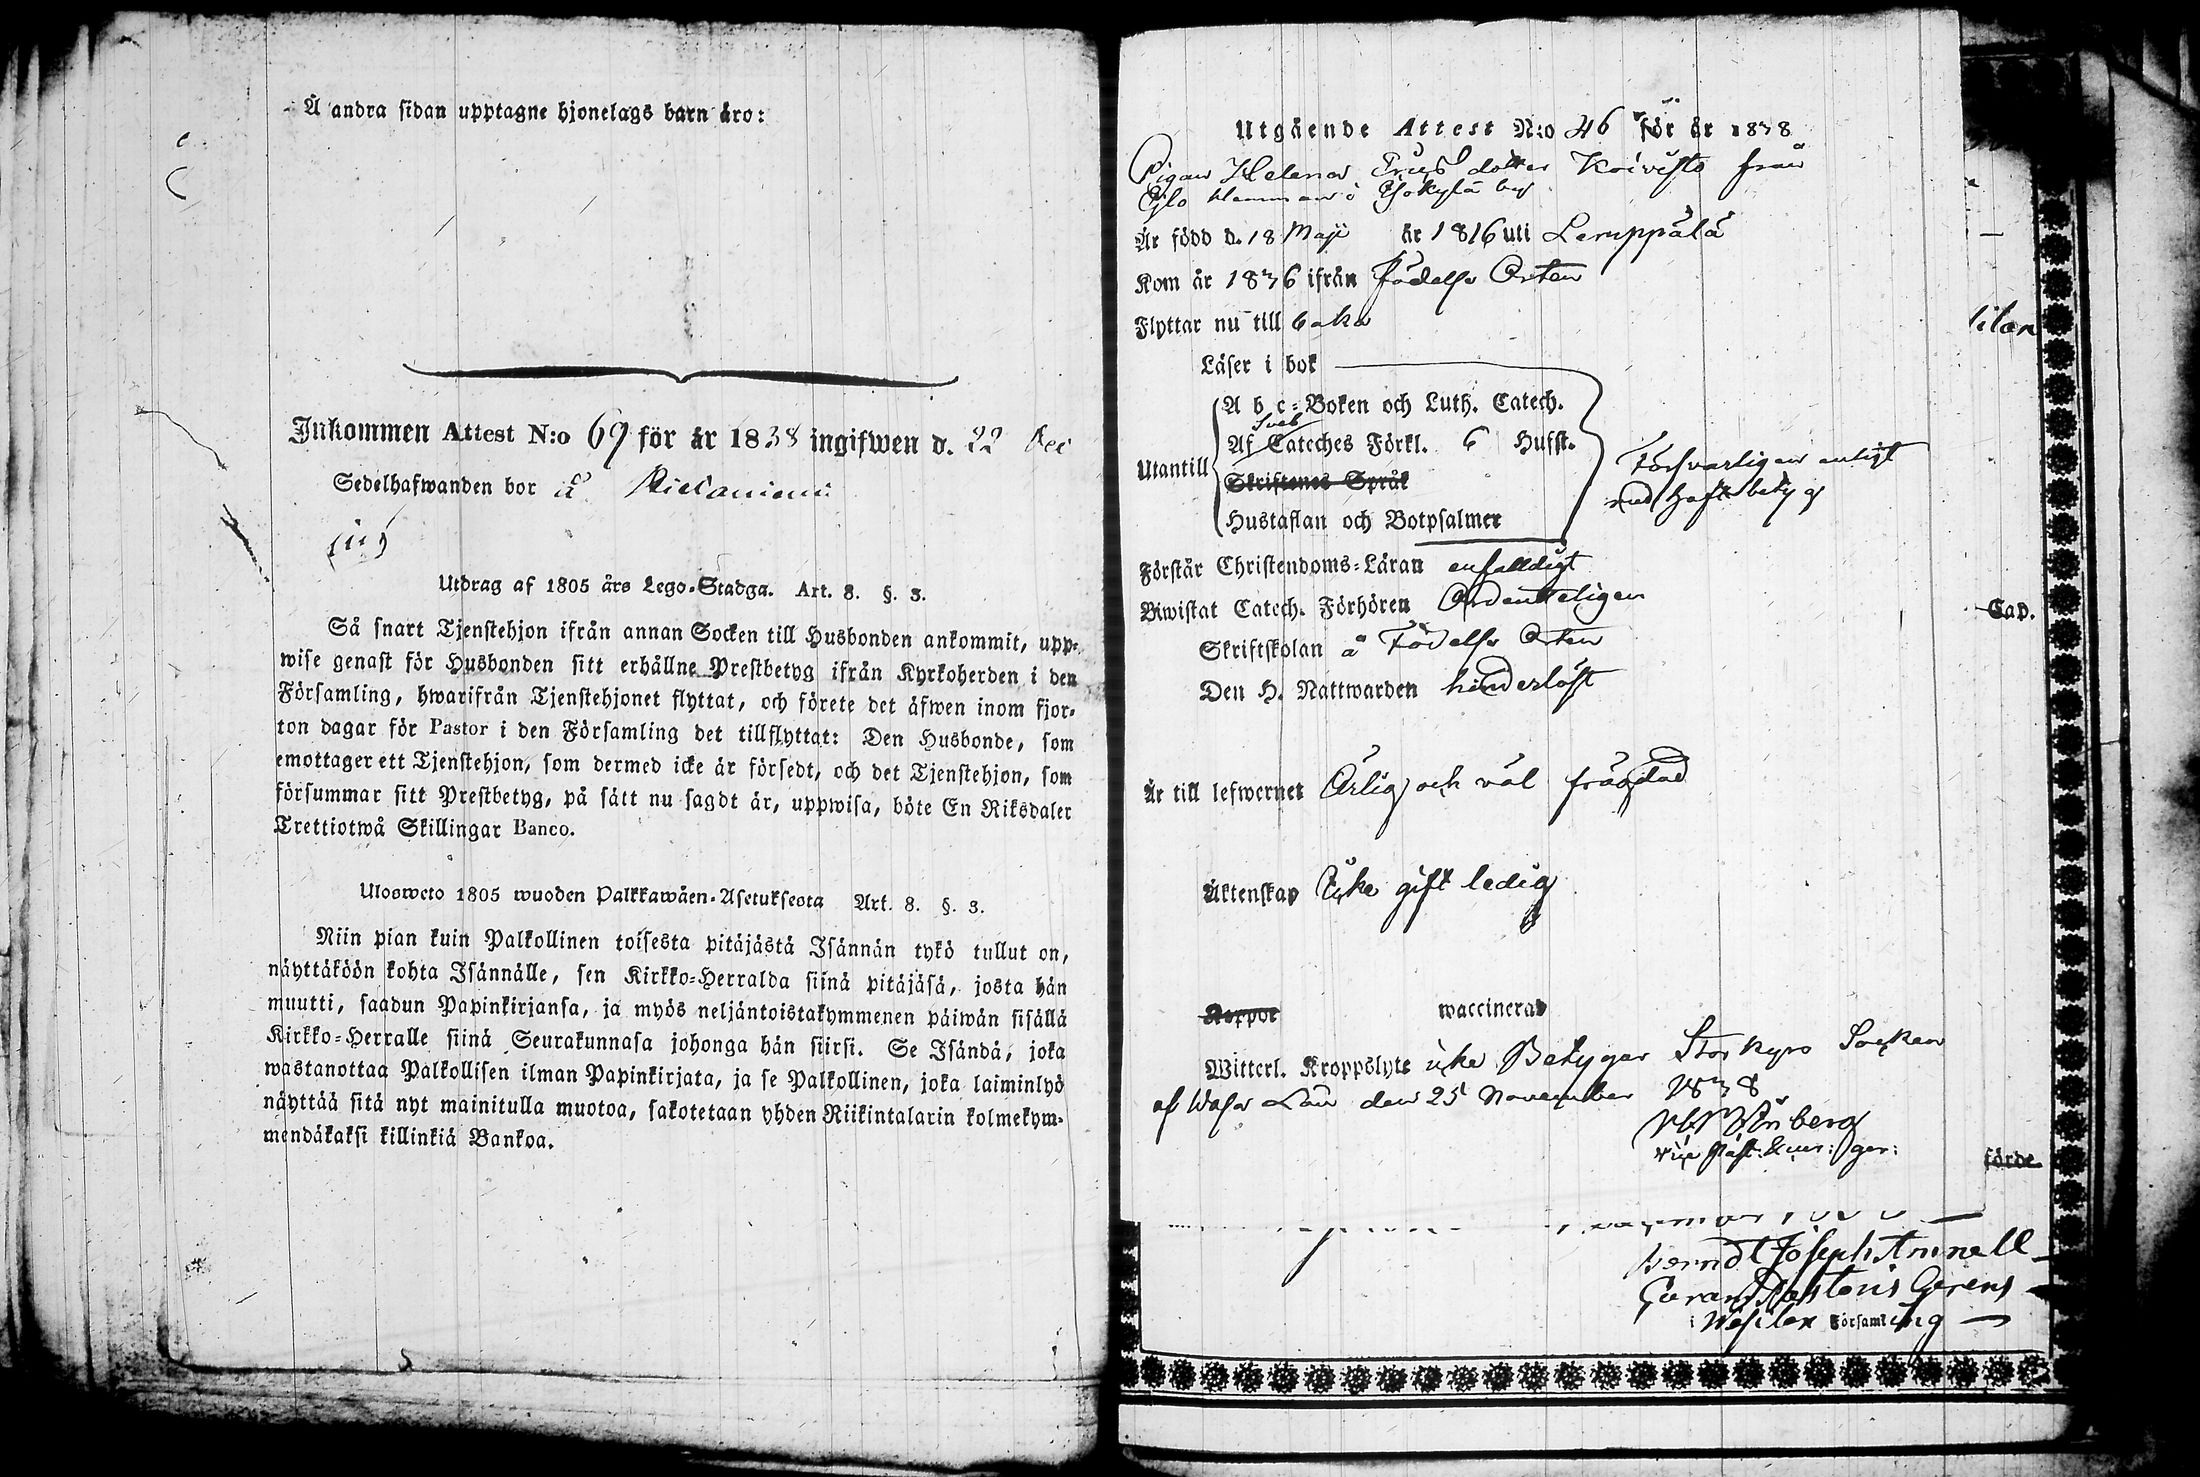 Å andra sidan upptagne hjonelags barn äro:
Inkommen Attest N:o 69 för år 1838 ingifwen d. 22 Dec
Sedelhafwanden bor å
Utdrag af 1805 års Lego-Stadga. Art. 8. §. 3.
Så snart Tjenstehjon ifrån annan Socken till Husbonden ankommit, upp-
wise genast för Husbonden sitt erhållne Prestbetyg ifrån Kyrkoherden i den
Församling, hwarifrån Tjenstehjonet flyttat, och förete det äfwen inom fjor-
ton dagar för Pastor i den Församling det tillflyttat: Den Husbonde, som
emottager ett Tjenstehjon, som dermed icke är försedt, och det Tjenstehjon, som
försummar sitt Prestbetyg, på sätt nu sagdt är, uppwisa, böte En Riksdaler
Trettiotwå Skillingar Banco.
Ulosweto 1805 wuoden Palkkawäen-Asetuksesta Art. 8. §. 3.
Niin pian kuin Palkollinen toisesta pitäjästä Isännän tykö tullut on,
näyttäköön kohta Isännälle, sen Kirkko-Herralda siinä pitäjäsä, josta hän
muutti, saadun Papinkirjansa, ja myös neljäntoistakymmenen päiwän sisällä
Kirkko-Herralle siinä Seurakunnasa johonga hän siirsi. Se Isändä, joka
wastanottaa Palkollisen ilman Papinkirjata, ja se Palkollinen, joka laiminlyö
näyttää sitä nyt mainitulla muotoa, sakotetaan yhden Riikintalarin kolmekym-
mendäkaksi killinkiä Bankoa.
Utgående Attest N:o 46 för år 1838
Pigan Helena dotter Koivisto från
hemman i by
Är född d. 18 Maji år 1816 uti Lemppälä
Kom år 1836 ifrån födelse Orten
Flyttar nu till baka
Läser i bok
A b c-Boken och Luth. Catech.
Sveb
Af Cateches Förkl. 6 Hufst.
Utantill
Skriftenes Språk
Hustaflan och Botpsalmer
Försvarligen enligt
med haft betyg
Förstår Christendoms-Läran enfalldigt
Biwistat Catech. Förhören Ordenteligen
Skriftskolan å Födelse Orten
Den H. Nattwarden hinderlöst
Är till lefwernet Ärlig och väl frägdad
Äktenskap Icke gift ledig
Koppor waccinerad
Witterl. Kroppslyte icke Betygar Storkyro Socken
af Wasa Län den 25 November 1838
Cap.
förde
Berndt Joseph
Pastoris Gerens
i Församling